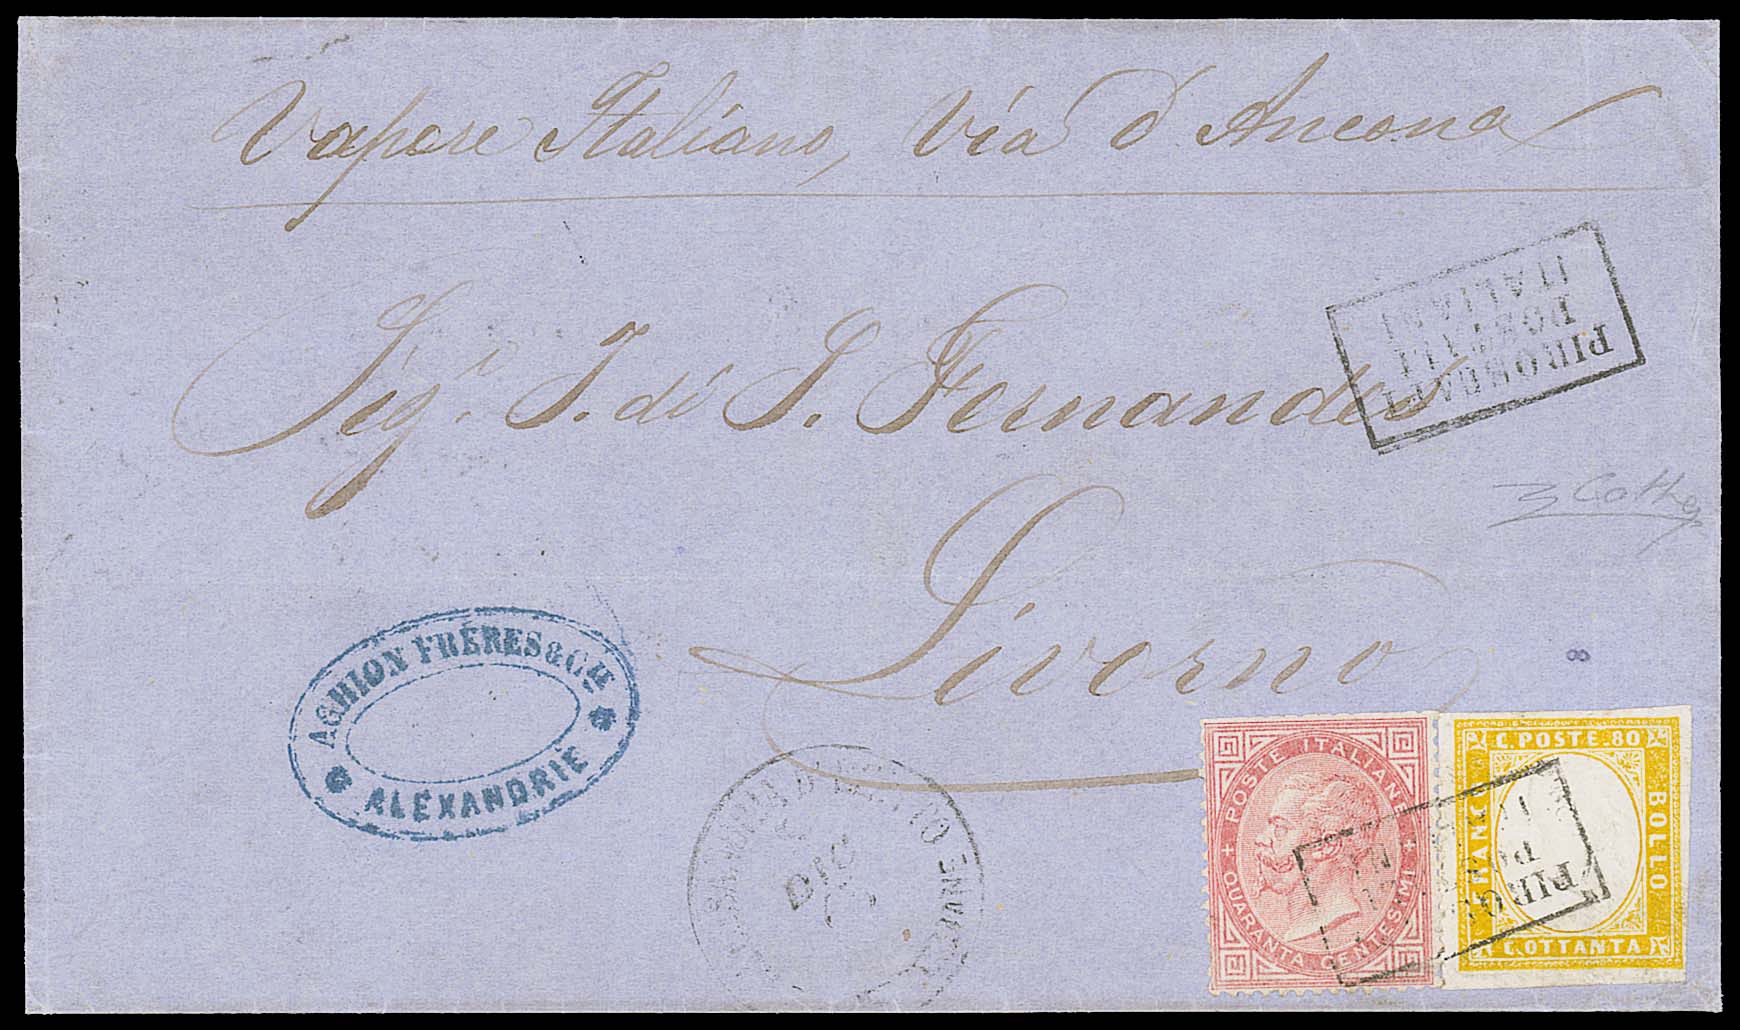 Vapore Italiano, Via d'Ancona
PIROSCAFI
POSTALI
ITALIANI
Sigr. J. di S. Fernandes
Livorno
AGHION FRÈRES & CIE
ALEXANDRIE
8
DIC
POSTE ITALIANE
QUARANTA CENTESIMI
C. POSTE. 80
BOLLO
C. OTTANTA
FRANCO
PIRO